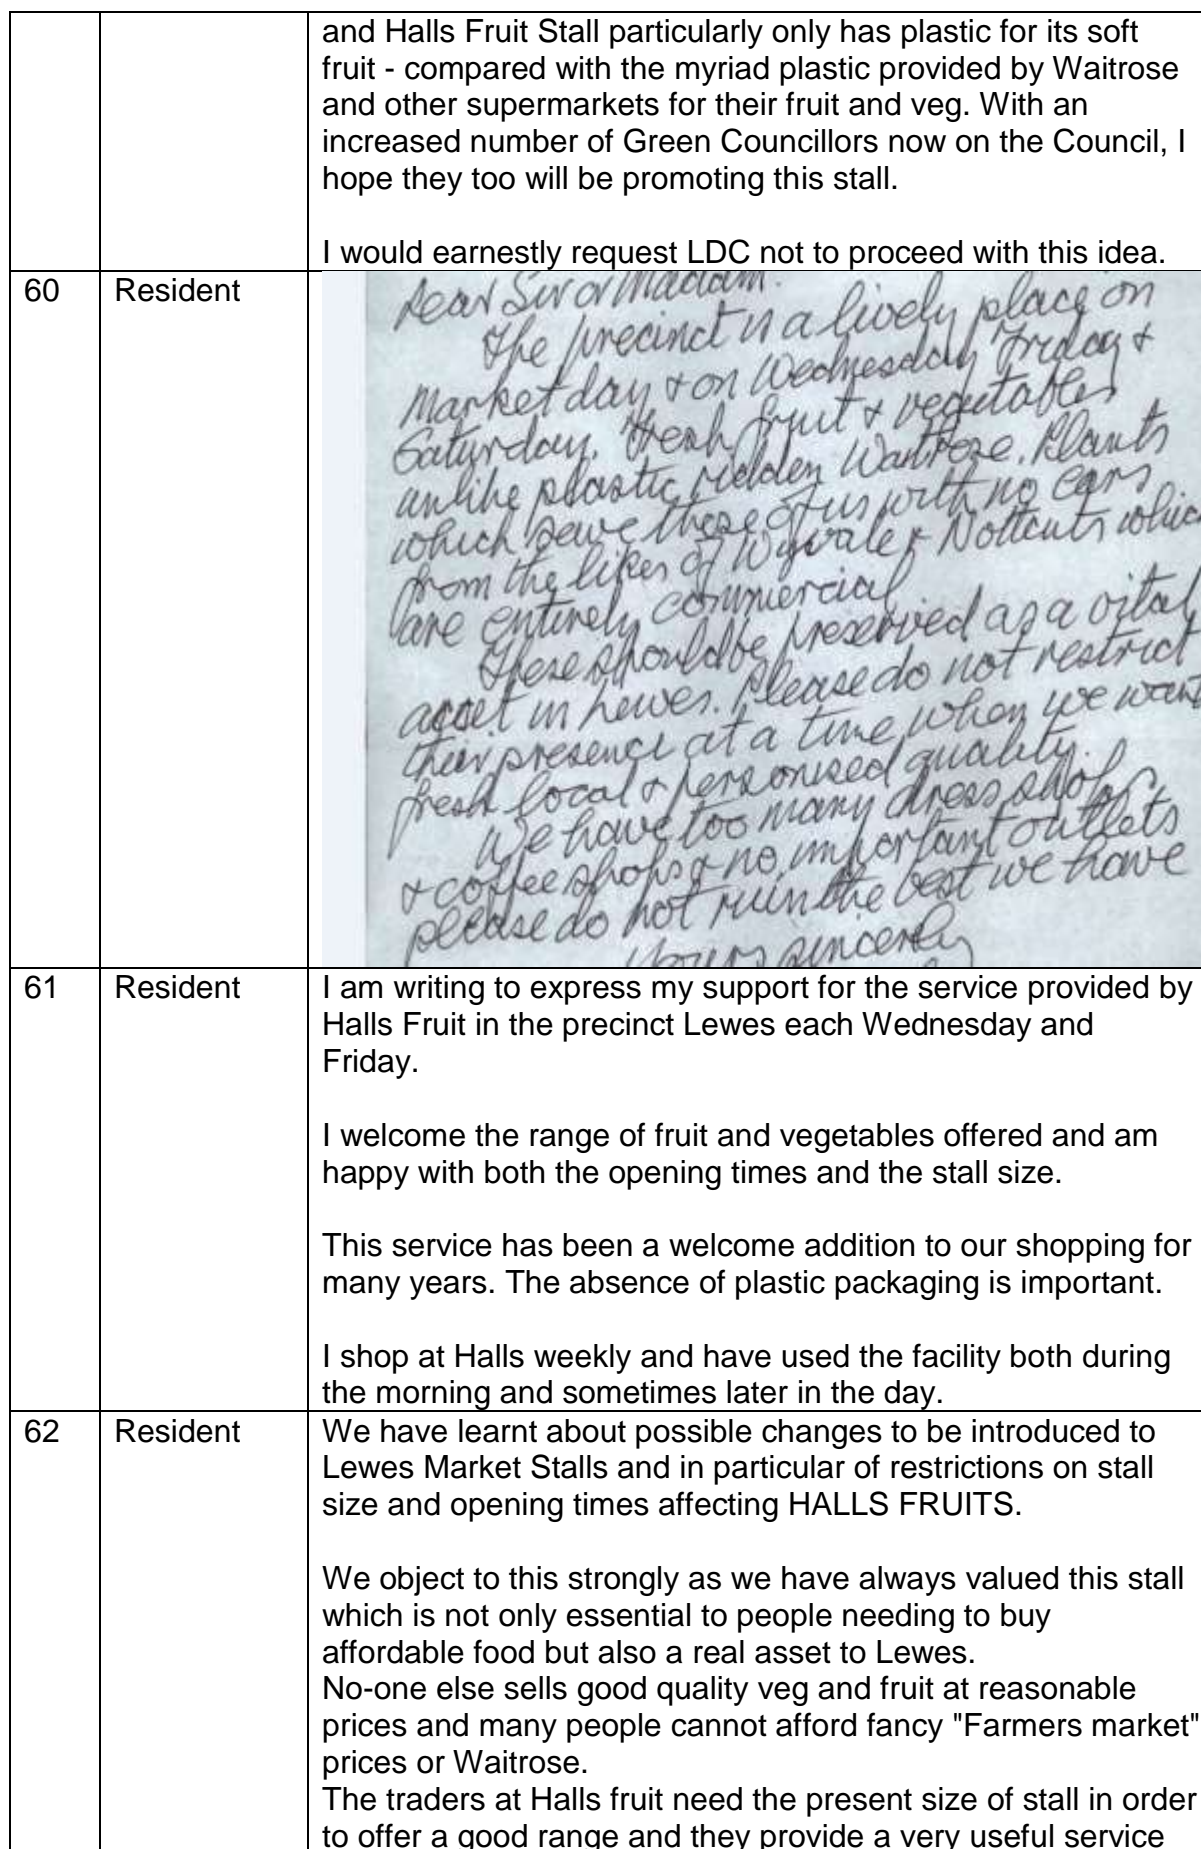 and Halls Fruit Stall particularly only has plastic for its soft
fruit - compared with the myriad plastic provided by Waitrose
and other supermarkets for their fruit and veg. With an
increased number of Green Councillors now on the Council, I
hope they too will be promoting this stall.
I would earnestly request LDC not to proceed with this idea.
60 Resident
Dear Sir or Madam.
The precinct is a lively place on
Market day & on Wednesday Friday &
Saturday. Fresh fruit & vegetables
unlike plastic ridden Waitrose. Plants
which save those of us with no cars
from the likes of Wyvale & Nottcuts which
are entirely commercial
These should be preserved as a vital
asset in Lewes. Please do not restrict
their presence at a time when we want
fresh local & personised quality.
We have too many dress shops
& coffee shops & no important outlets
please do not ruin the best we have
Yours sincerely
61 Resident
I am writing to express my support for the service provided by
Halls Fruit in the precinct Lewes each Wednesday and
Friday.
I welcome the range of fruit and vegetables offered and am
happy with both the opening times and the stall size.
This service has been a welcome addition to our shopping for
many years. The absence of plastic packaging is important.
I shop at Halls weekly and have used the facility both during
the morning and sometimes later in the day.
62 Resident
We have learnt about possible changes to be introduced to
Lewes Market Stalls and in particular of restrictions on stall
size and opening times affecting HALLS FRUITS.
We object to this strongly as we have always valued this stall
which is not only essential to people needing to buy
affordable food but also a real asset to Lewes.
No-one else sells good quality veg and fruit at reasonable
prices and many people cannot afford fancy "Farmers market"
prices or Waitrose.
The traders at Halls fruit need the present size of stall in order
to offer a good range and they provide a very useful service